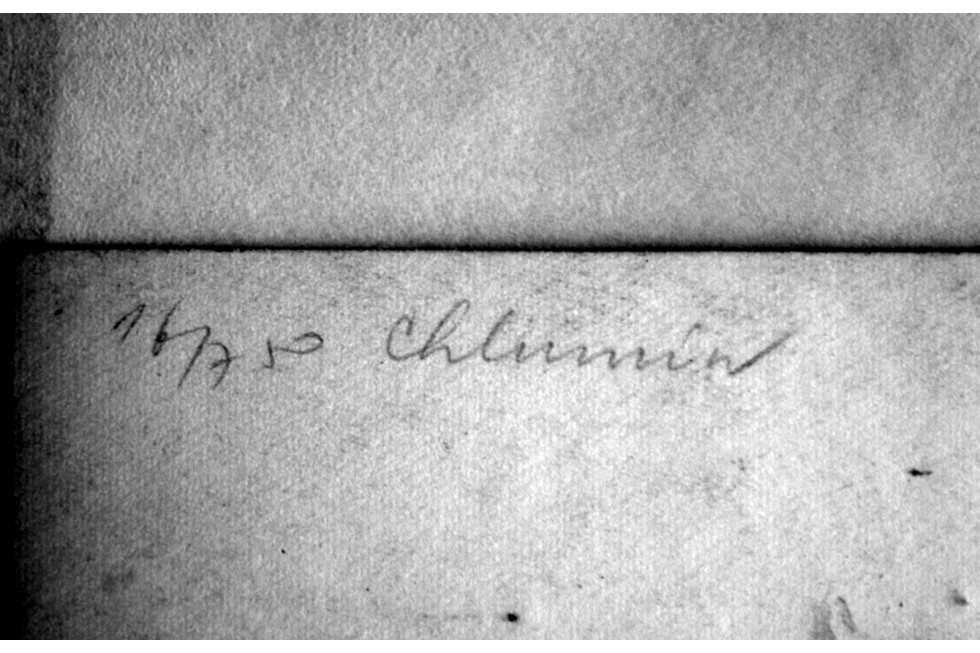 16/7 50 Chlumín